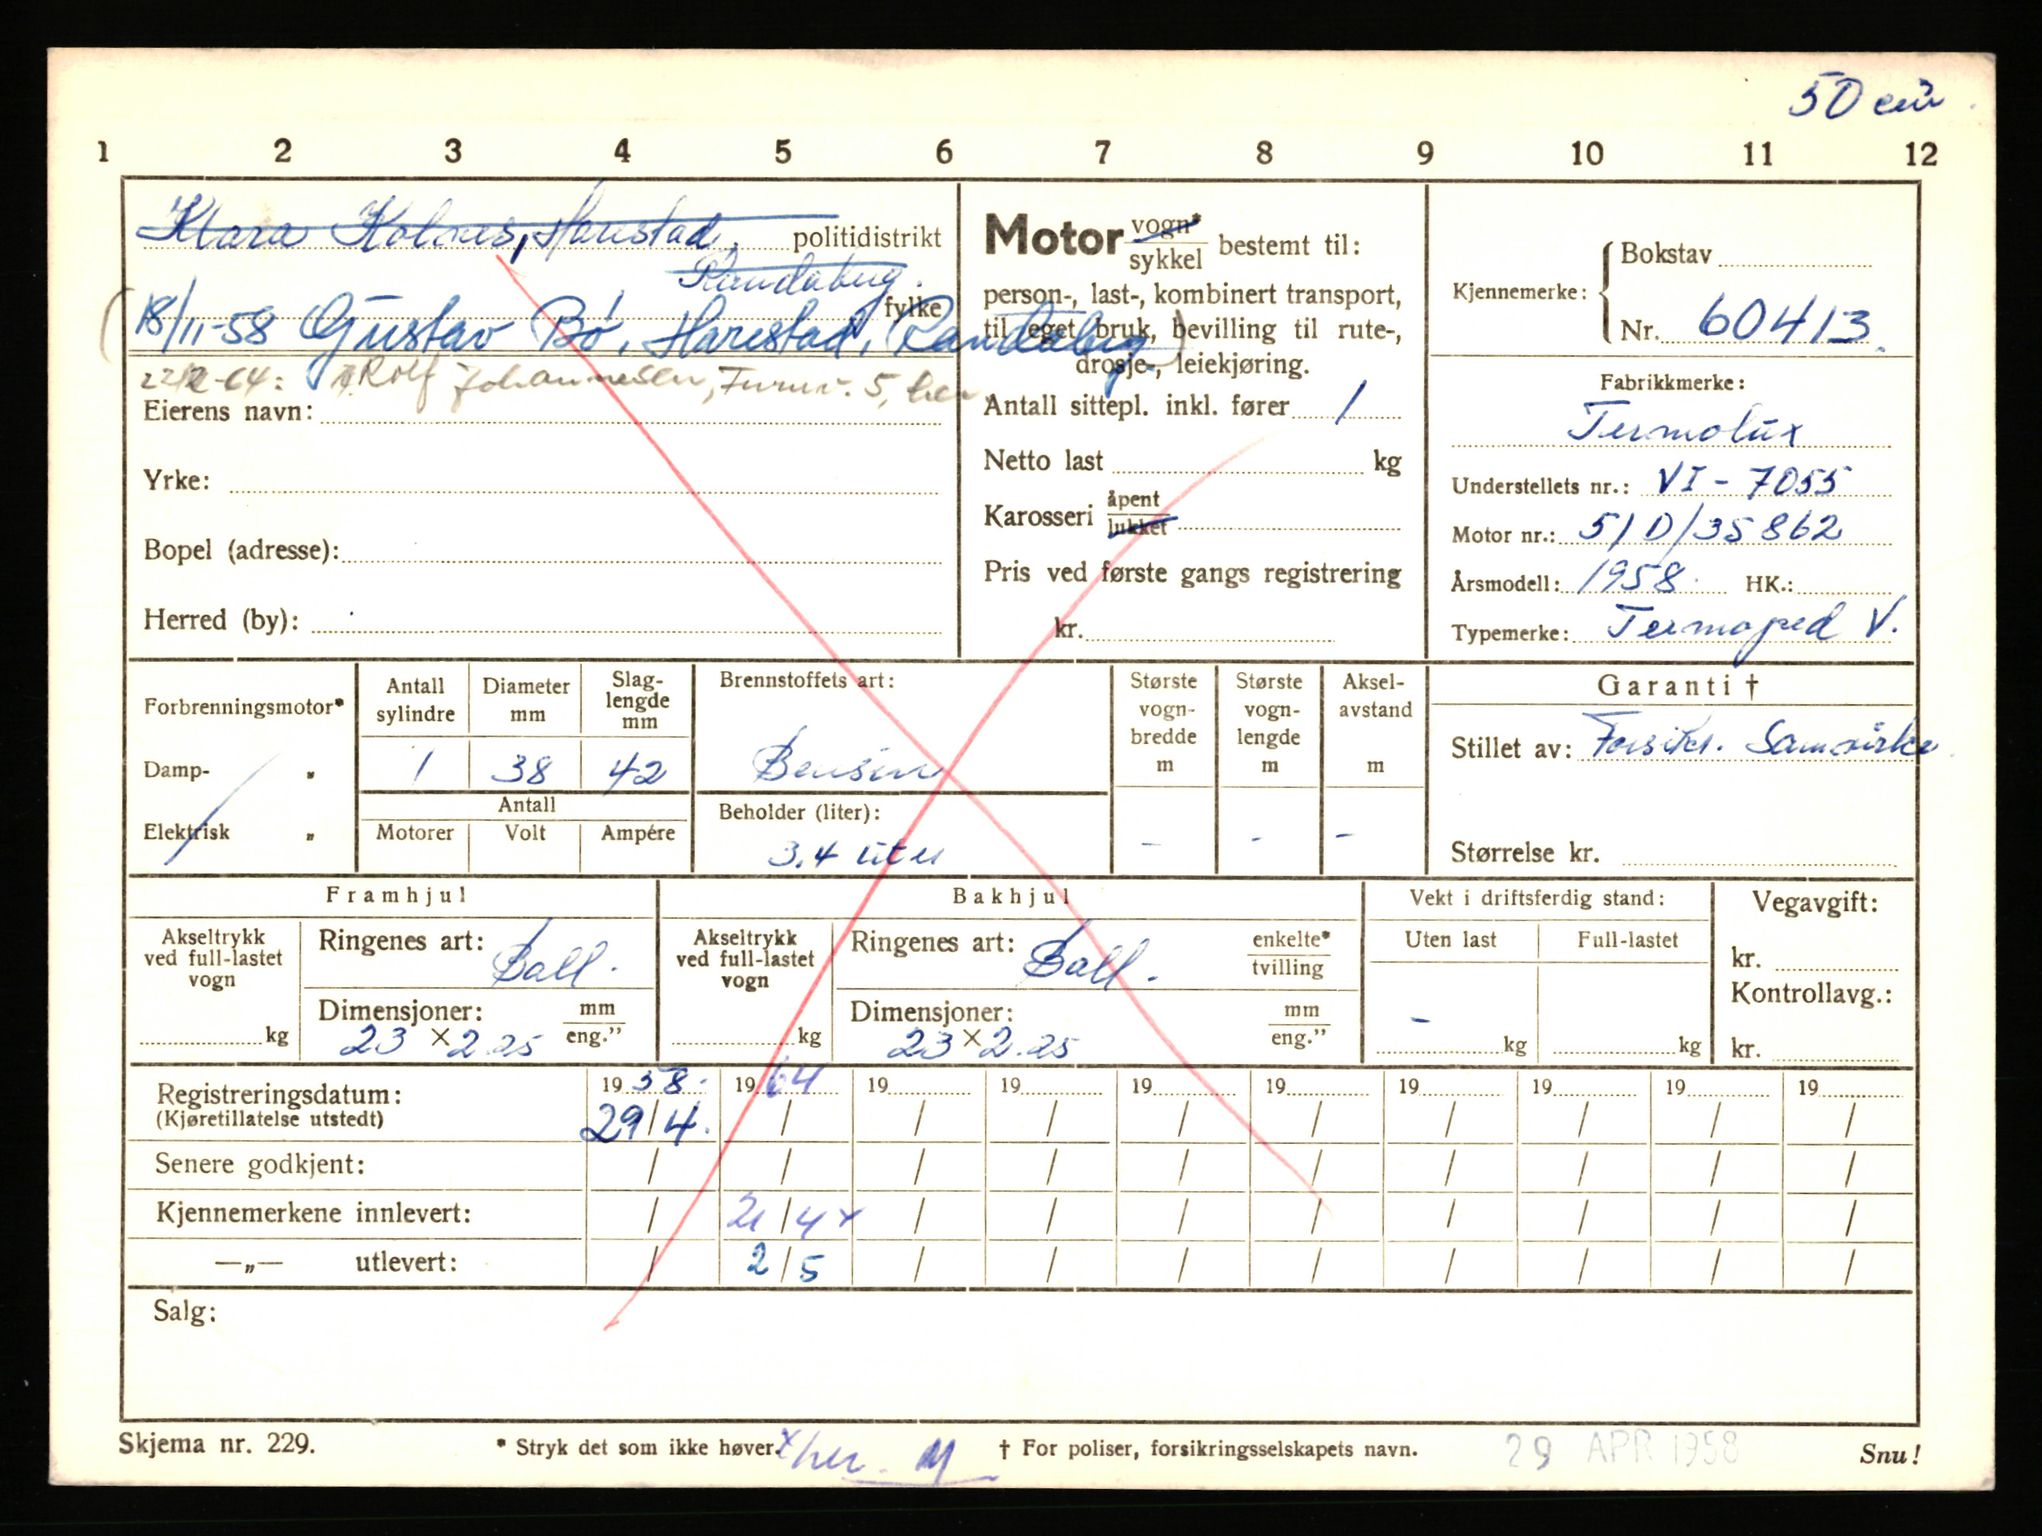 50 cm³
1 2 3 4 5 6 7 8 9 10 11 12
Klara Kolnes, Harestad, politidistrikt
Randaberg. fylke
18/11-58 Gustav Bø, Harestad, Randaberg
22/2-64: Rolf Johannesen, Furuv. 5, her
Eierens navn:
Yrke:
Bopel (adresse):
Herred (by):
Motor vogn* sykkel bestemt til:
person-, last-, kombinert transport,
til eget bruk, bevilling til rute-,
drosje-, leiekjøring.
Antall sittepl. inkl. fører 1
Netto last kg
Karosseri åpent lukket
Pris ved første gangs registrering
kr.
Kjennemerke: Bokstav
Nr. 60413.
Fabrikkmerke:
Termolux
Understellets nr.: VI - 7055
Motor nr.: 51D/35862
Årsmodell: 1958 HK.:
Typemerke: Termoped V.
Forbrenningsmotor*
Damp- „
Elektrisk „
Antall sylindre Diameter mm Slag-lengde mm
1 38 42
Antall
Motorer Volt Ampére
Brennstoffets art:
Bensin
Beholder (liter):
3.4 liter
Største vogn-bredde m
Største vogn-lengde m
Aksel-avstand m
- - -
Garanti †
Stillet av: Forsikr. Samvirke
Størrelse kr.
Framhjul
Akseltrykk ved full-lastet vogn
kg
Ringenes art: Ball.
Dimensjoner: mm eng."
23 × 2.25
Bakhjul
Akseltrykk ved full-lastet vogn
kg
Ringenes art: Ball. enkelte* tvilling
Dimensjoner: mm eng."
23 × 2.25
Vekt i driftsferdig stand:
Uten last Full-lastet
- kg kg
Vegavgift:
kr.
Kontrollavg.:
kr.
Registreringsdatum: 1958. 1964 19 19 19 19 19 19 19 19
(Kjøretillatelse utstedt) 29/4. / / / / / / / / /
Senere godkjent: / / / / / / / / / /
Kjennemerkene innlevert: / 21/4 x / / / / / / / /
—„— utlevert: / 2/5 / / / / / / / /
Salg:
Skjema nr. 229. * Stryk det som ikke høver. x her. † For poliser, forsikringsselskapets navn. 29 APR 1958 Snu!